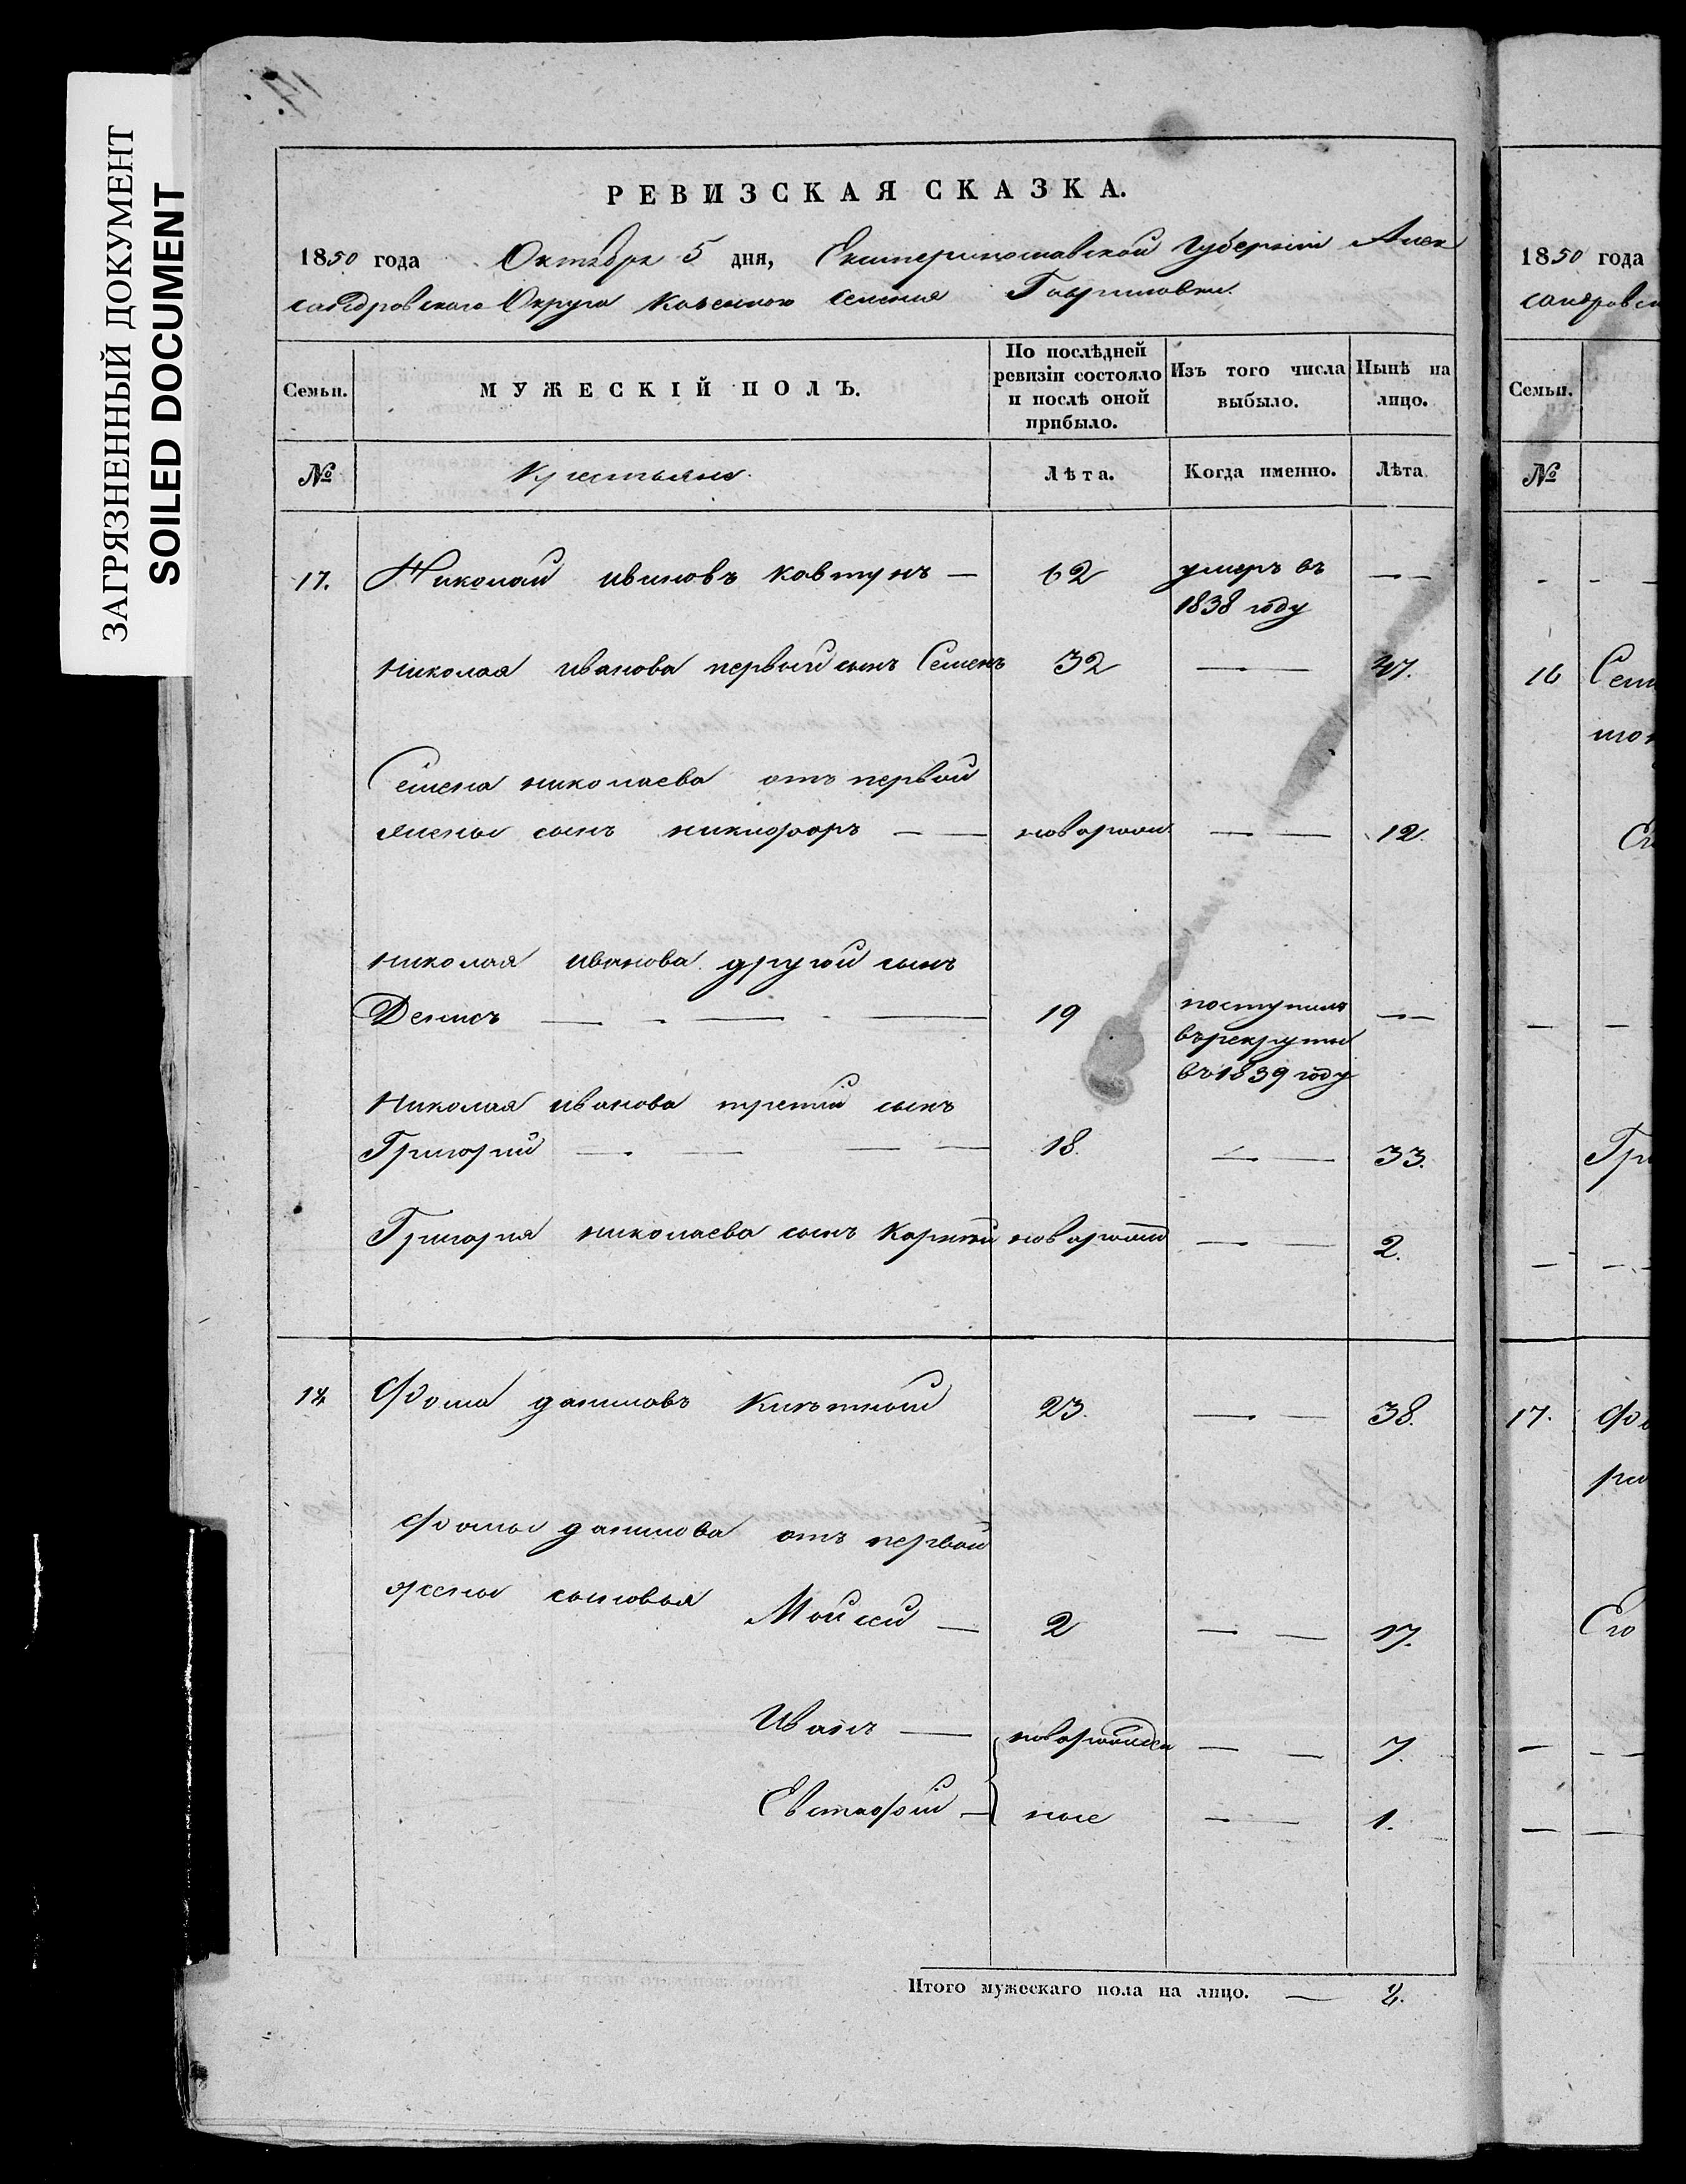 ЗАГРЯЗНЕННЫЙ ДОКУМЕНТ
SOILED DOCUMENT
РЕВИЗСКАЯ СКАЗКА.
1850 года Октября 5 дня, Екатеринославской Губерніи Алек
сандровского Округа Казенного селения Гавриловки.
Семьи. МУЖЕСКІЙ ПОЛЪ. По послѣдней ревизіи состояло и послѣ оной прибыло. Изъ того числа выбыло. Нынѣ на лицо.
№ Крестьяне. Лѣта. Когда именно. Лѣта
17. Николай ивановъ ковтунъ — 62 умеръ въ — —
1838 году
николая иванова первый сынъ Семенъ 32 — — 47.
Семена николаева отъ первой
жены сынъ никифоръ — — новорож — — 12.
николая иванова другой сынъ
Денисъ — — — — 19 поступилъ — —
въ рекруты
въ 1839 году
николая иванова третий сынъ
Григорий — — — — 18. — — 33.
Григория николаева сынъ новорож — — 2.
Фома даниловъ 23. — — 38.
Фомы данилова отъ первой
жены сыновья Мойсей — 2 — — 17.
Иванъ — новорожден — — 7.
Евстафий — ные — — 1.
Итого мужескаго пола на лицо. —
1850 года
сандровск
Семьи.
№
16 Сем
Гри
17. Фо
Его